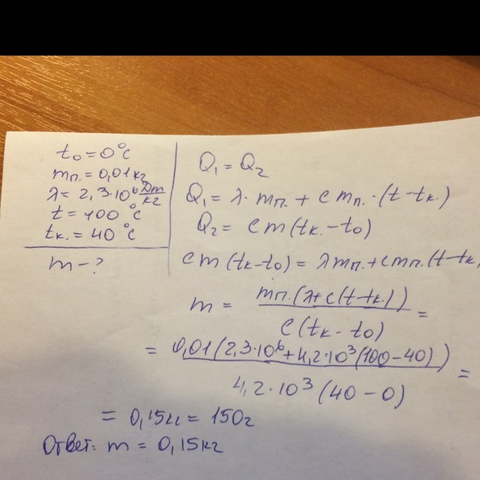 t₀ = 0°C
mп. = 0,01 кг
λ = 2,3·10⁶ Дж/кг
t = 100 °C
tк. = 40 °C
m - ?
Q₁ = Q₂
Q₁ = λ·mп. + c mп.·(t - tк.)
Q₂ = cm(tк. - t₀)
cm(tк - t₀) = λmп. + cmп.(t - tк
m = mп.(λ + c(t - tк.)) / c(tк - t₀) =
= 0,01(2,3·10⁶ + 4,2·10³(100 - 40)) / 4,2·10³(40 - 0) =
= 0,15кг = 150г
Ответ: m = 0,15кг